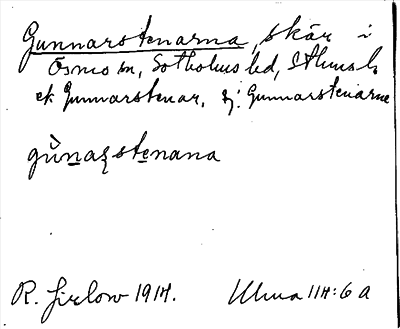 Gunnarstenarna, skär i
Ösmo sn, Sotholms hd, Sthms l.
ek Gunnarstenar, sj. Gunnarstenarne
gùnaʂstenana
R. Jirlow 1914. Ulma 114:6 a